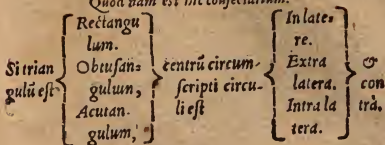 Quod nam est hic consectarium.
Si trian gulũ est
Rectangu lum.
Obtusan= gulum,
Acutan- gulum,
centrũ circum- scripti circu- li est
In late= re.
Extra latera.
Intra la tera.
& con trà.